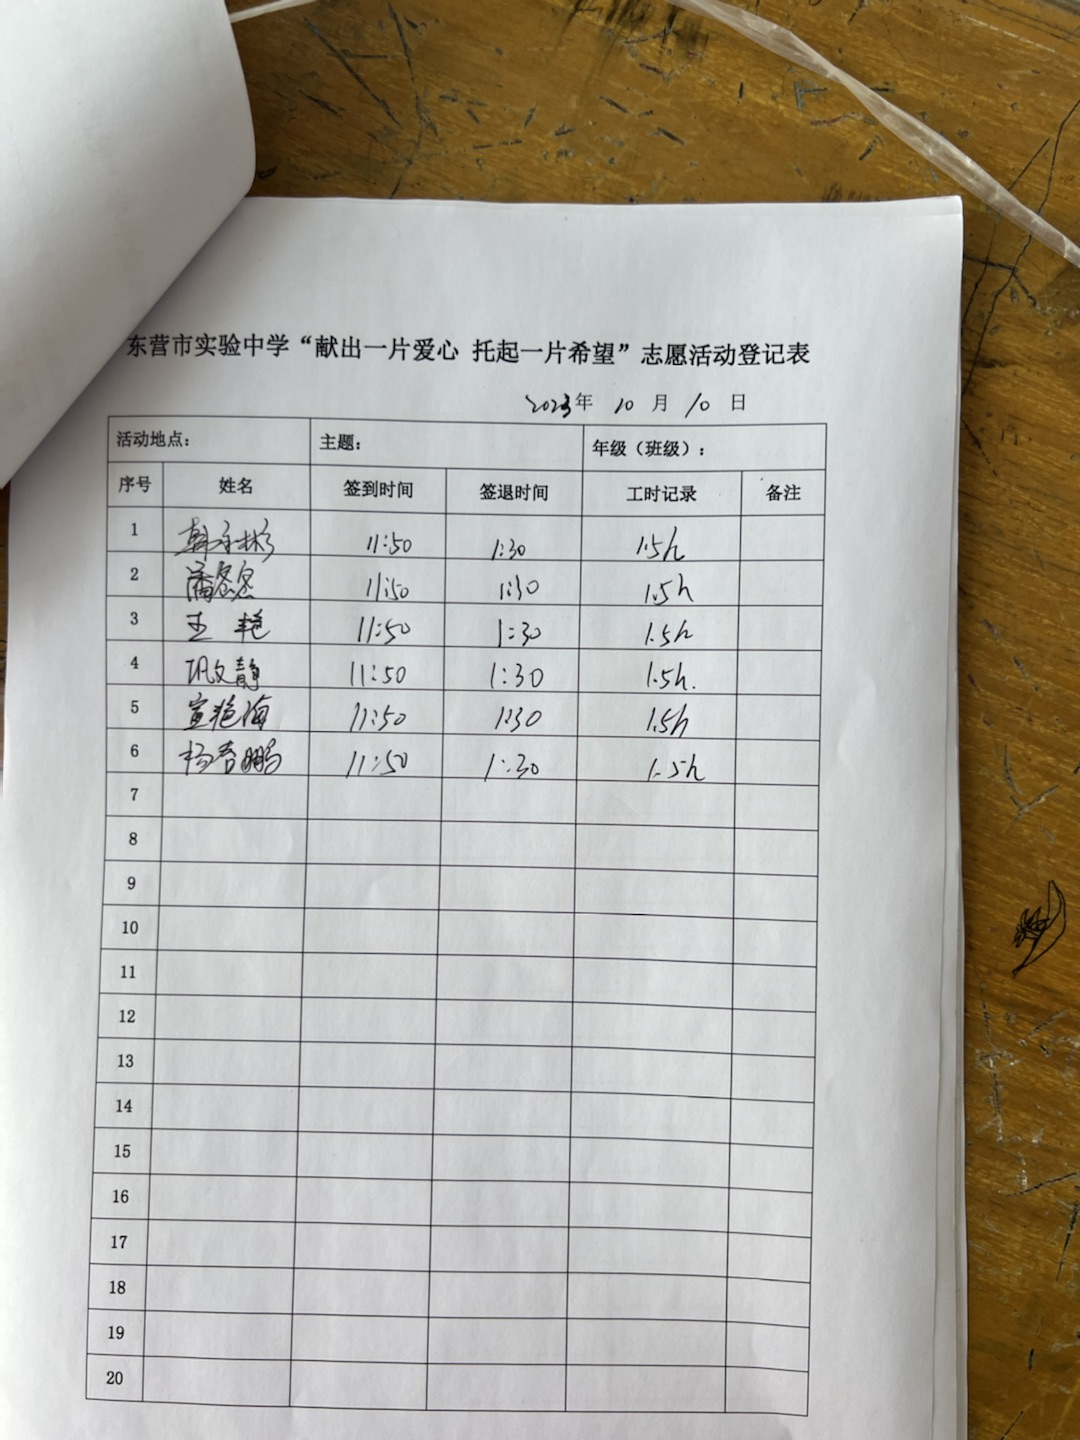 东营市实验中学“献出一片爱心 托起一片希望”志愿活动登记表
2023年 10 月 10 日
活动地点: 主题: 年级（班级）:
序号 姓名 签到时间 签退时间 工时记录 备注
1 11:50 1:30 1.5h
2 11:50 1:30 1.5h
3 王艳 11:50 1:30 1.5h
4 巩文静 11:50 1:30 1.5h.
5 宣艳海 11:50 1:30 1.5h
6 杨春鹏 11:50 1:30 1.5h
7
8
9
10
11
12
13
14
15
16
17
18
19
20